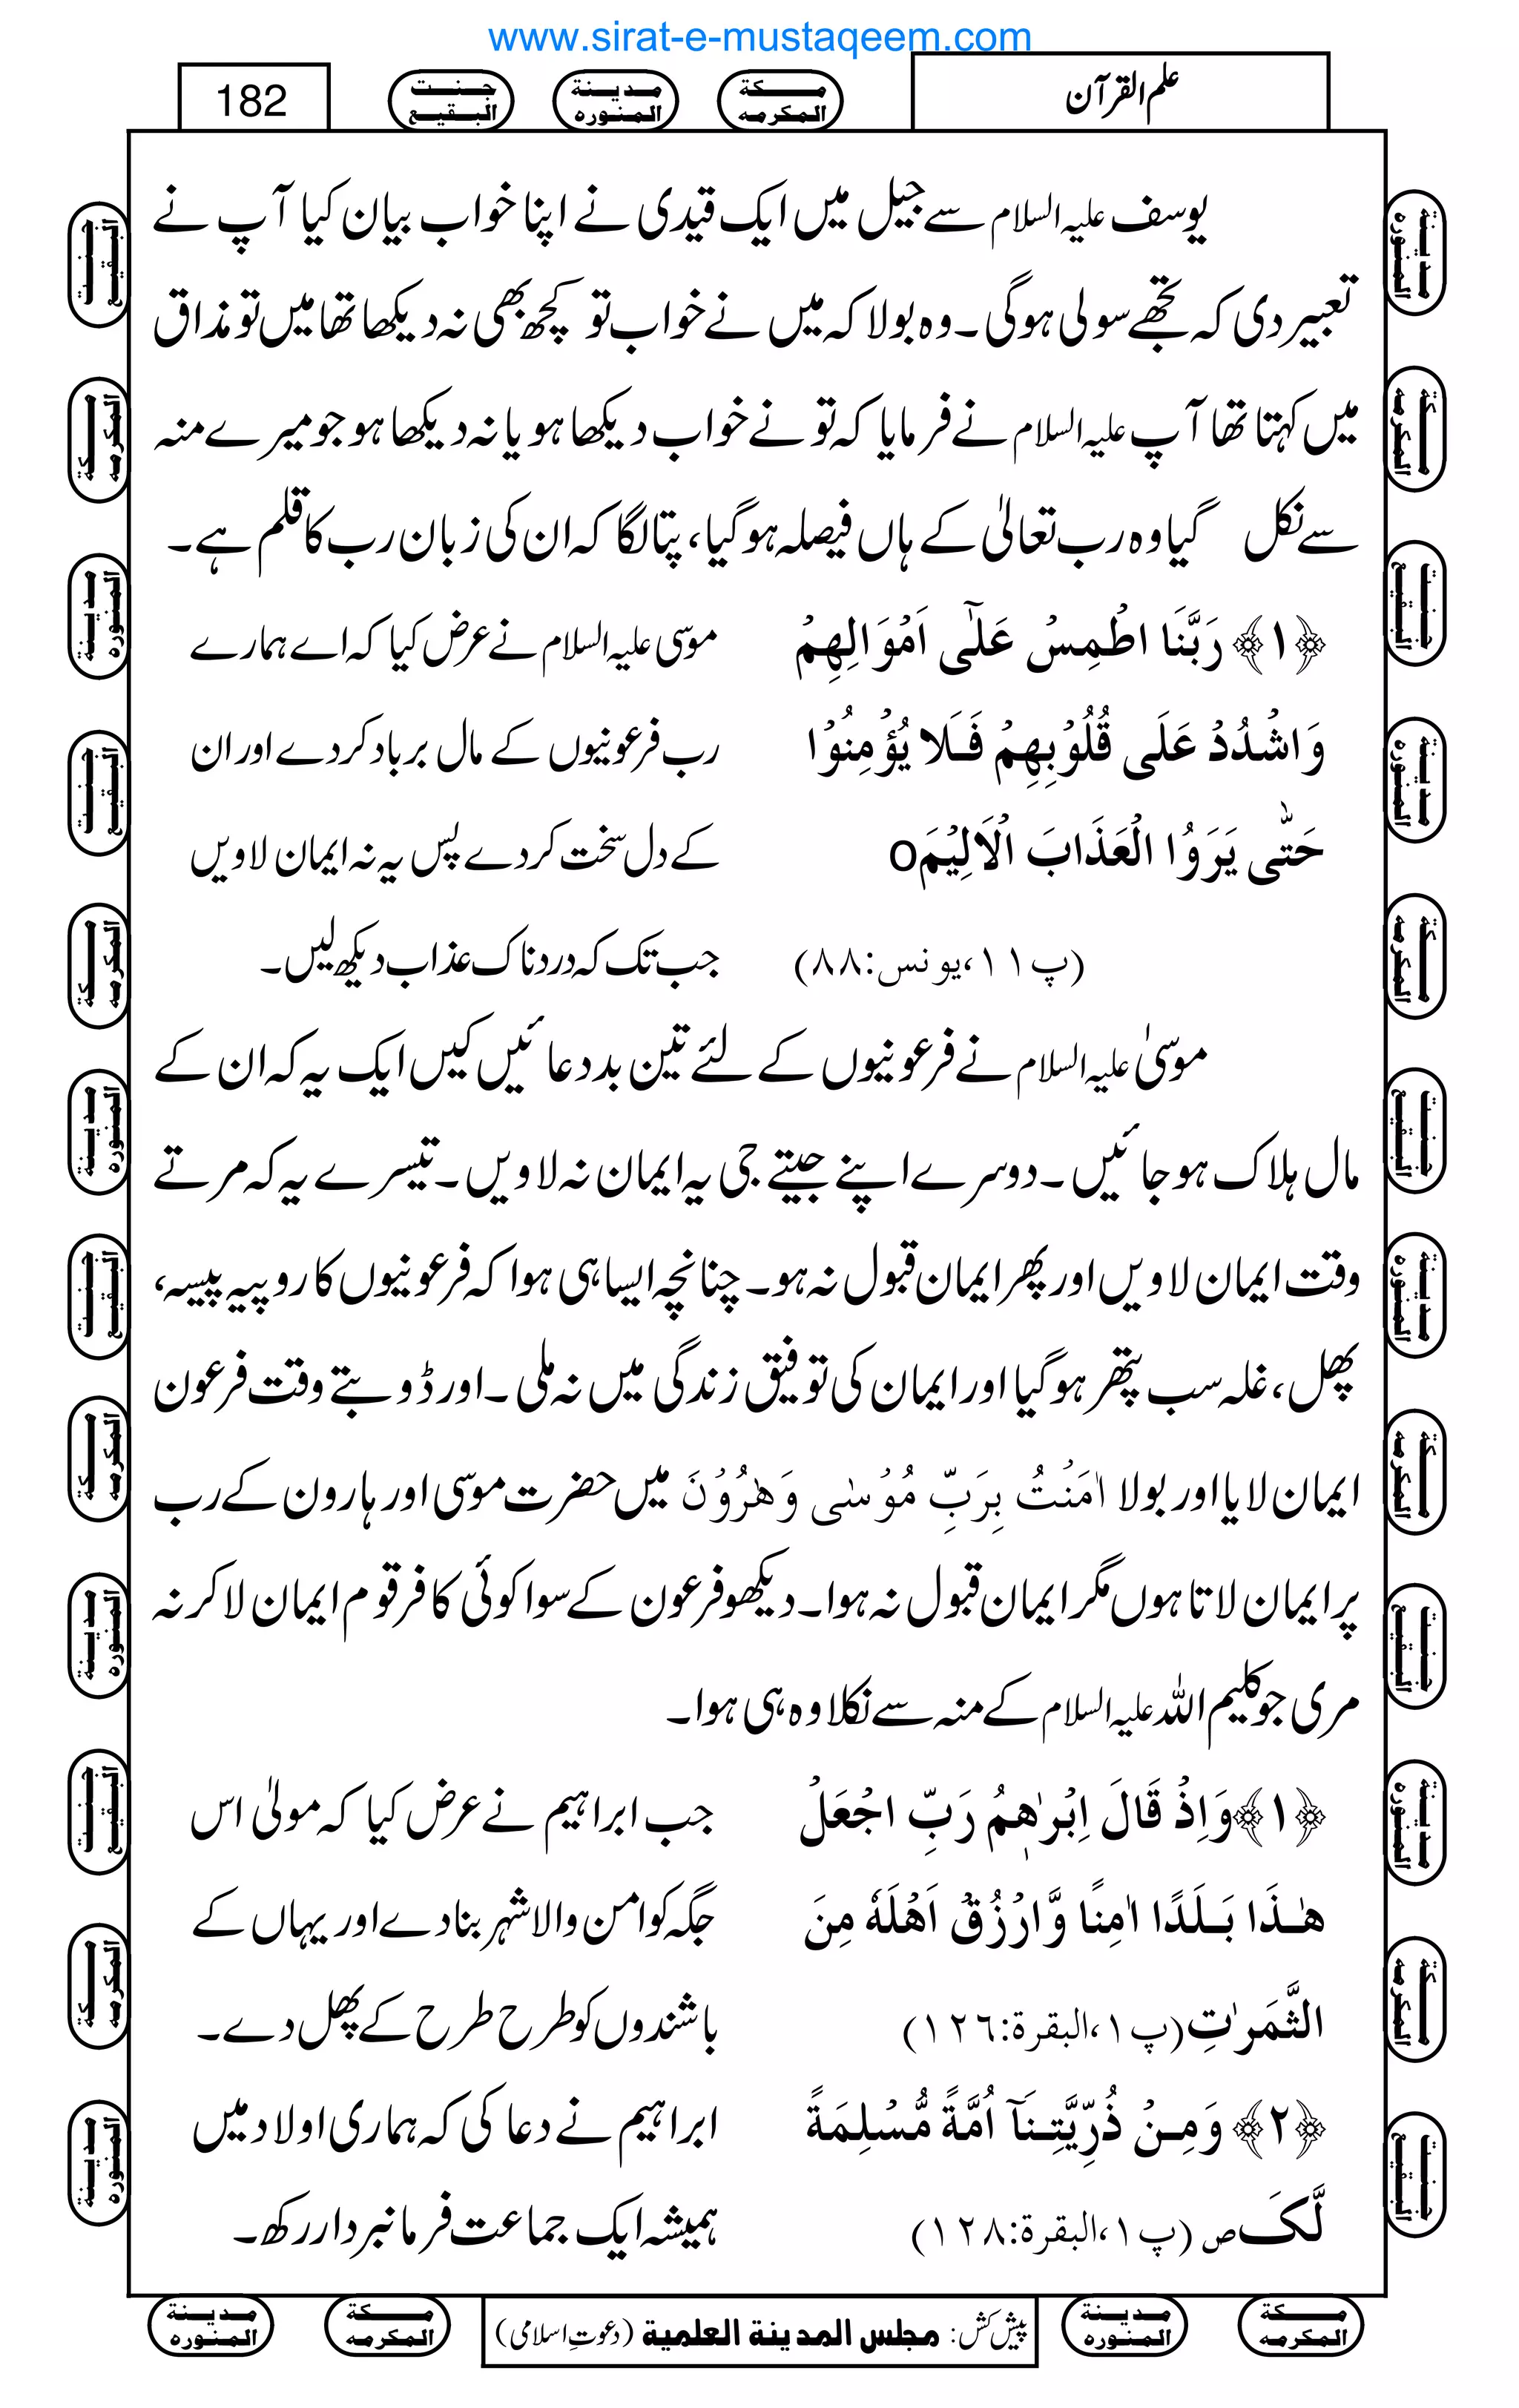 www.sirat-e-mustaqeem.com
علم القرآن
مكة المكرمه
مدينة المنوره
جنت البقيع
182
یوسف علیہ السلام سے جیل میں ایک قیدی نے اپنا خواب بیان کیا آپ نے
تعبیر دی کہ تجھے سولی ہوگی۔ وہ بولا کہ میں نے خواب تو کچھ بھی نہ دیکھا تھا میں تو مذاق
میں کہتا تھا آپ علیہ السلام نے فرمایا کہ تو نے خواب دیکھا ہو یا نہ دیکھا ہو جو میرے منہ
سے نکل گیا وہ رب تعالیٰ کے ہاں فیصلہ ہوگیا، پتا لگا کہ ان کی زبان رب کا قلم ہے۔
﴿١﴾ رَبَّنَا اطْمِسْ عَلٰٓى اَمْوَالِهِمْ
موسی علیہ السلام نے عرض کیا کہ اے ہمارے
وَاشْدُدْ عَلَى قُلُوْبِهِمْ فَلَا يُؤْمِنُوْا
رب فرعونیوں کے مال برباد کردے اور ان
حَتّٰى يَرَوُا الْعَذَابَ الْاَلِيْمَo
کے دل سخت کردے پس یہ نہ ایمان لاویں
(پ١١، یونس:٨٨)
جب تک کہ دردناک عذاب دیکھ لیں۔
موسیٰ علیہ السلام نے فرعونیوں کے لئے تین بددعائیں کیں ایک یہ کہ ان کے
مال ہلاک ہوجائیں۔ دوسرے اپنے جیتے جی یہ ایمان نہ لاویں۔ تیسرے یہ کہ مرتے
وقت ایمان لاویں اور پھر ایمان قبول نہ ہو۔ چنانچہ ایسا ہی ہوا کہ فرعونیوں کا روپیہ پیسہ،
پھل، غلہ سب پتھر ہوگیا اور ایمان کی توفیق زندگی میں نہ ملی۔ اور ڈوبتے وقت فرعون
ایمان لایا اور بولا اٰمَنْتُ بِرَبِّ مُوْسٰى وَهٰرُوْنَ میں حضرت موسی اور ہارون کے رب
پر ایمان لاتا ہوں مگر ایمان قبول نہ ہوا۔ دیکھو فرعون کے سوا کوئی کافر قوم ایمان لاکر نہ
مری جو کلیم اللہ علیہ السلام کے منہ سے نکلا وہ ہی ہوا۔
﴿١﴾ وَاِذْ قَالَ اِبْرٰهٖمُ رَبِّ اجْعَلْ
جب ابراہیم نے عرض کیا کہ مولیٰ اس
هٰذَا بَلَدًا اٰمِنًا وَّارْزُقْ اَهْلَهٗ مِنَ
جگہ کو امن والا شہر بنادے اور یہاں کے
الثَّمَرٰتِ (پ١، البقرة:١٢٦)
باشندوں کو طرح طرح کے پھل دے۔
﴿٢﴾ وَمِنْ ذُرِّيَّتِنَآ اُمَّةً مُّسْلِمَةً
ابراہیم نے دعا کی کہ ہماری اولاد میں
لَّکَ ص (پ١، البقرة:١٢٨)
ہمیشہ ایک جماعت فرمانبردار رکھ۔
مكة المكرمه
مدينة المنوره
پیش کش: مجلس المدينة العلمية (دعوتِ اسلامی)
مكة المكرمه
مدينة المنوره